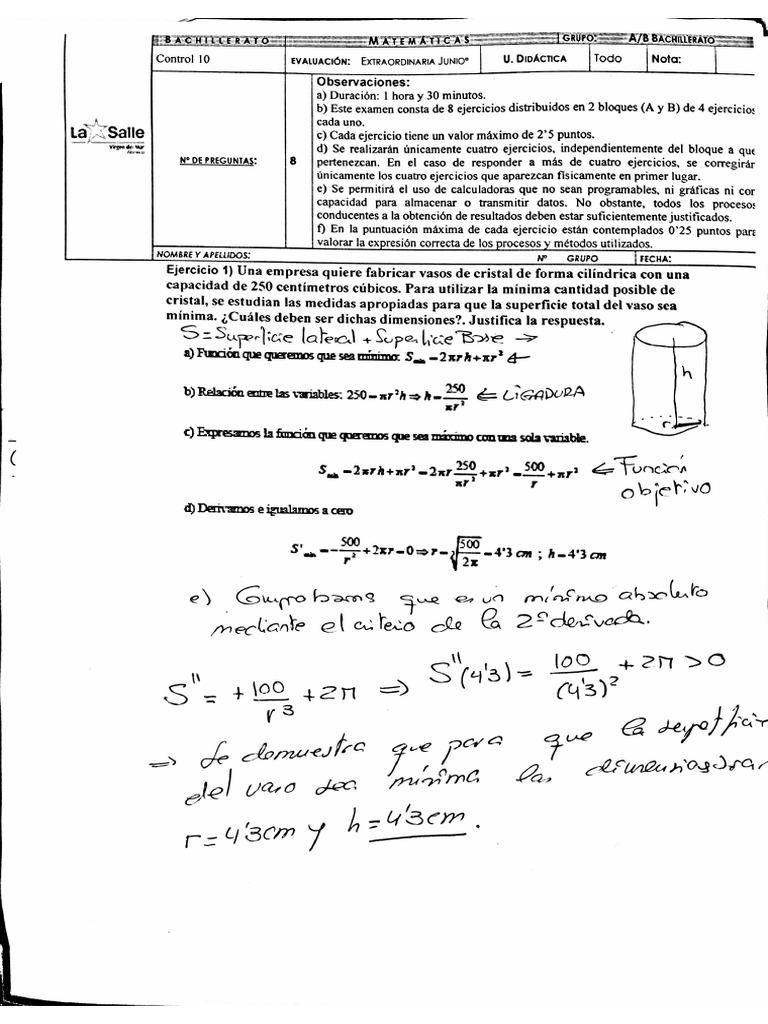 BACHILLERATO MATEMÁTICAS GRUPO: A/B BACHILLERATO
Control 10 EVALUACIÓN: EXTRAORDINARIA JUNIO* U. DIDÁCTICA Todo Nota:
La Salle
Virgen del Mar
Nº DE PREGUNTAS: 8
Observaciones:
a) Duración: 1 hora y 30 minutos.
b) Este examen consta de 8 ejercicios distribuidos en 2 bloques (A y B) de 4 ejercicios
cada uno.
c) Cada ejercicio tiene un valor máximo de 2'5 puntos.
d) Se realizarán únicamente cuatro ejercicios, independientemente del bloque a que
pertenezcan. En el caso de responder a más de cuatro ejercicios, se corregirán
únicamente los cuatro ejercicios que aparezcan físicamente en primer lugar.
e) Se permitirá el uso de calculadoras que no sean programables, ni gráficas ni con
capacidad para almacenar o transmitir datos. No obstante, todos los procesos
conducentes a la obtención de resultados deben estar suficientemente justificados.
f) En la puntuación máxima de cada ejercicio están contemplados 0'25 puntos para
valorar la expresión correcta de los procesos y métodos utilizados.
NOMBRE Y APELLIDOS: Nº GRUPO FECHA:
Ejercicio 1) Una empresa quiere fabricar vasos de cristal de forma cilíndrica con una
capacidad de 250 centímetros cúbicos. Para utilizar la mínima cantidad posible de
cristal, se estudian las medidas apropiadas para que la superficie total del vaso sea
mínima. ¿Cuáles deben ser dichas dimensiones?. Justifica la respuesta.
S = Superficie lateral + Superficie Base →
a) Función que queremos que sea mínimo: S_mín = 2πrh + πr² ←
h
r
b) Relación entre las variables: 250 = πr²h ⇒ h = 250/πr² ⇐ LIGADURA
c) Expresamos la función que queremos que sea máximo con una sola variable.
S_mín = 2πrh + πr² = 2πr 250/πr² + πr² = 500/r + πr² ⇐ Función
objetivo
d) Derivamos e igualamos a cero
S'_mín = -500/r² + 2πr = 0 ⇒ r = ∛(500/2π) = 4'3 cm ; h = 4'3 cm
e) Comprobamos que es un mínimo absoluto
mediante el criterio de la 2ª derivada.
S'' = +100/r³ + 2π ⇒ S''(4'3) = 100/(4'3)² + 2π > 0
⇒ Se demuestra que para que la superficie
del vaso sea mínima las dimensiones
r = 4'3cm y h = 4'3cm.